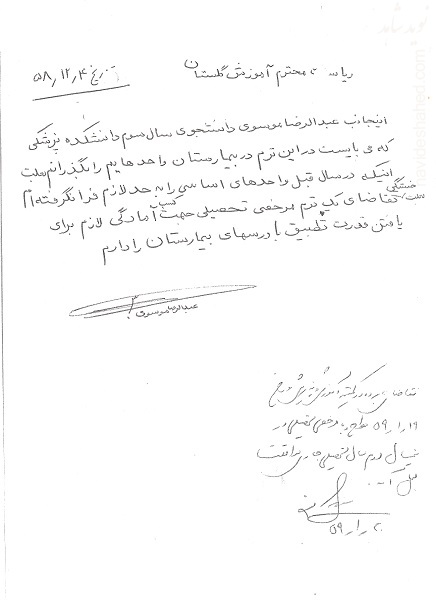 تاریخ ۵۸,۱۲,۴
ریاست محترم آموزش گلستان
اینجانب عبدالرضا موسوی دانشجوی سال سوم دانشکده پزشکی
که می بایست در این ترم در بیمارستان واحدهایم را بگذرانم بعلت
اینکه در سال قبل واحدهای اساسی را به حد لازم فرا نگرفته ام
خستگی
تقاضای یک ترم مرخصی تحصیلی جهت کسب آمادگی لازم برای
یافتن قدرت تطبیق با درسهای بیمارستان را دارم
عبدالرضا موسوی
تقاضای
۵۹,۱,۱۹ مرخصی تحصیلی در
نیمسال دوم سال تحصیلی جاری موافقت
بعمل آمد
۵۹,۱,۲۰